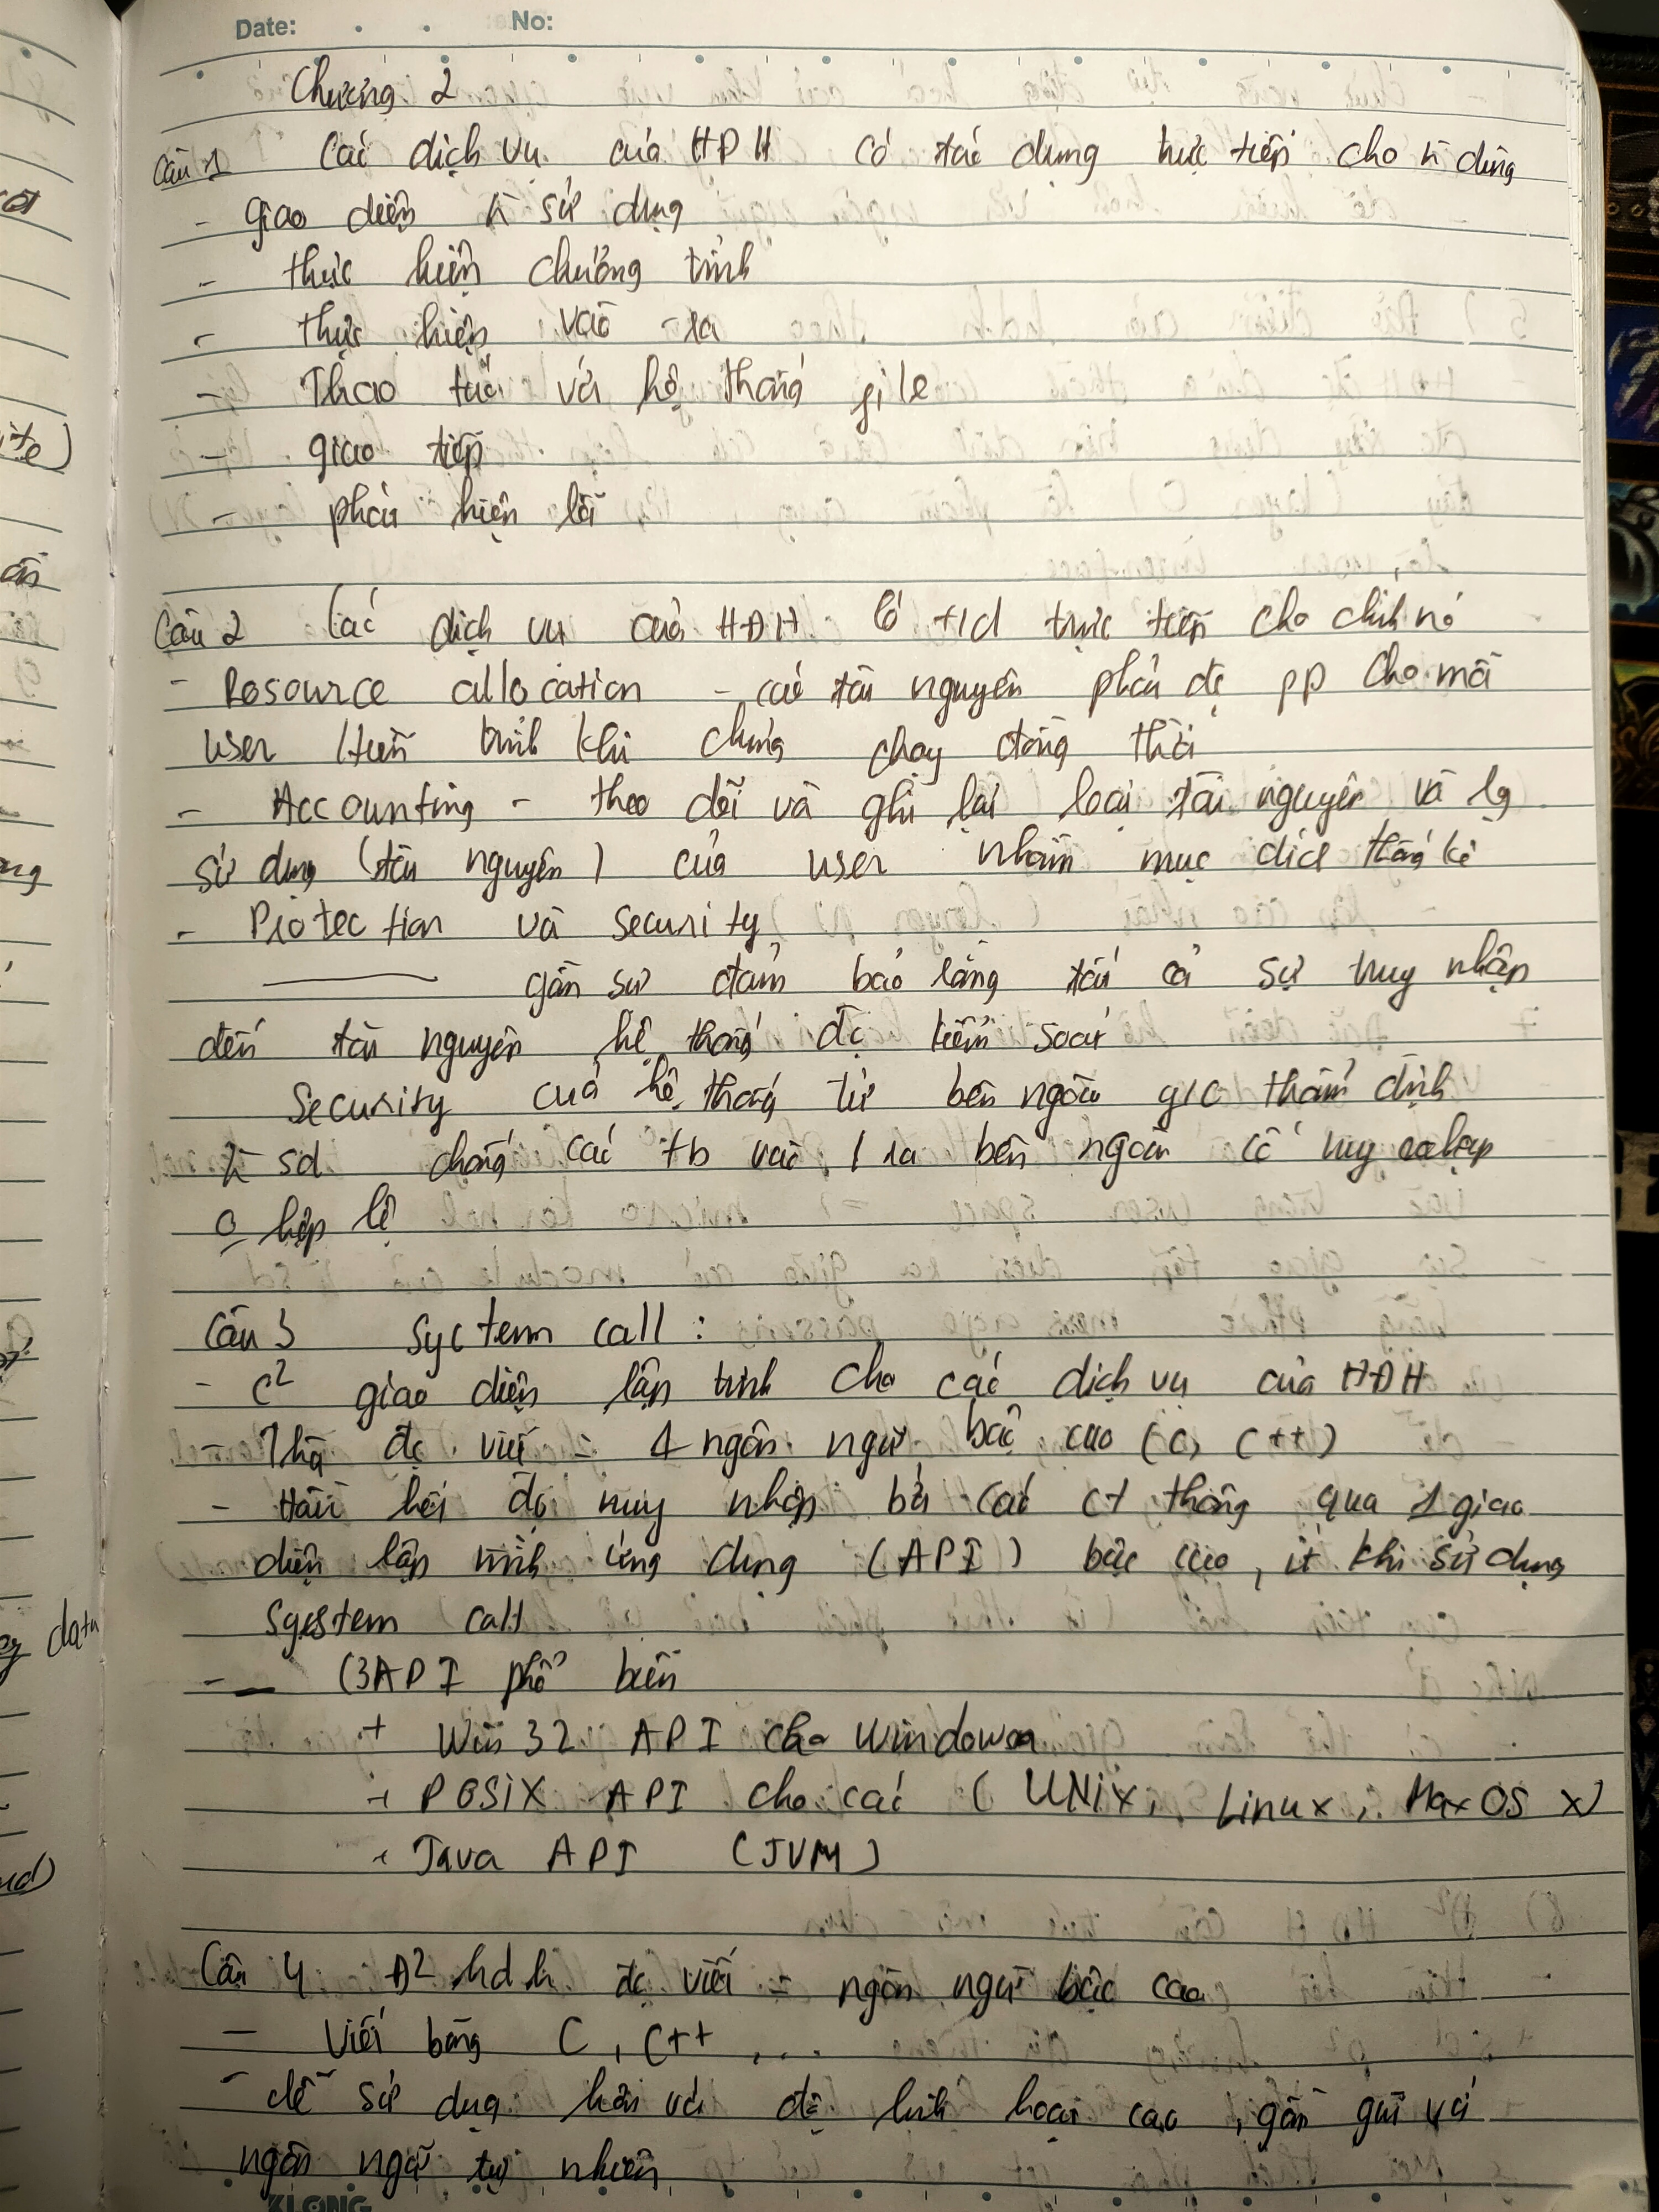 Date: No:
Chương 2
Câu 1 Các dịch vụ của HĐH có tác dụng trực tiếp cho dùng
- giao diện sử dụng
- thực hiện chương trình
- thực hiện vào - ra
- Thao tác với hệ thống file
- giao tiếp
- phát hiện lỗi
Câu 2 Các dịch vụ của HĐH có t/d trực tiếp cho chính nó
- Resource allocation - các tài nguyên phải đc pp cho mỗi
user / tiến trình khi chúng chạy đồng thời
- Accounting - theo dõi và ghi lại loại tài nguyên và lg
sử dụng (tài nguyên) của user nhằm mục đích thống kê
- Protection và security
đảm bảo rằng tất cả sự truy nhập
đến tài nguyên hệ thống đc kiểm soát
Security của hệ thống từ bên ngoài thẩm định
sd chống các tb vào / ra bên ngoài cố truy nhập
o hợp lệ
Câu 3 System call :
- c² giao diện lập trình cho các dịch vụ của HĐH
- Thg đc viết = 1 ngôn ngữ bậc cao (C, C++)
- Hầu hết đc truy nhập bởi các ct thông qua 1 giao
diện lập trình ứng dụng (API) bậc cao, ít khi sử dụng
system call
- (3 API phổ biến
+ Win 32 API cho Windows
+ POSIX API cho các (UNIX, Linux, Max OS X)
+ Java API (JVM)
Câu 4 Đ² hđh đc viết = ngôn ngữ bậc cao
- Viết bằng C, C++, ...
- dễ sử dụng hơn với độ linh hoạt cao, gần gũi với
ngôn ngữ tự nhiên
KLONG
data